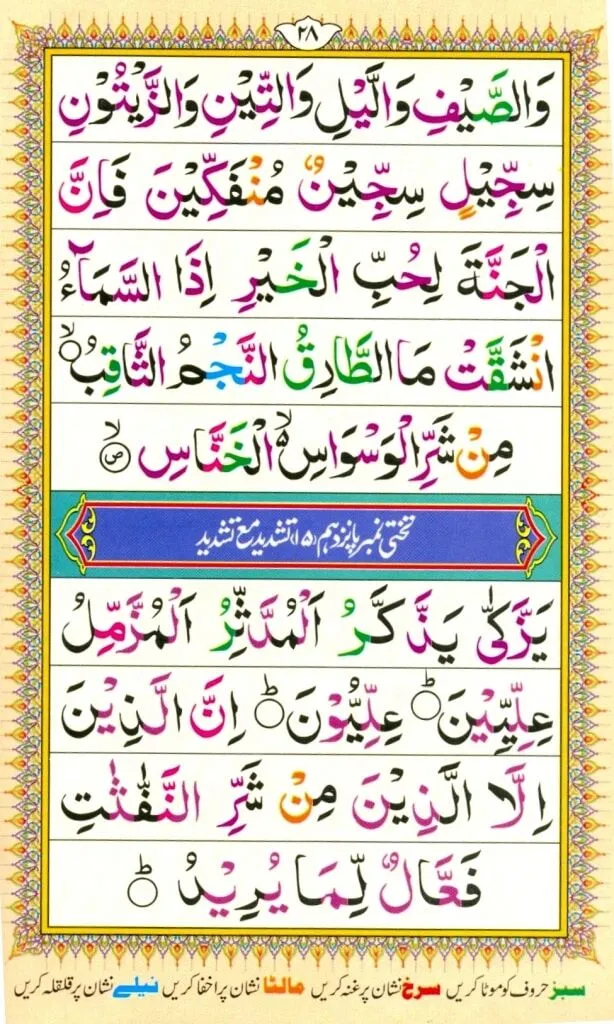 ۲۸
وَالصَّيْفِ وَالَّيْلِ وَالتِّيْنِ وَالزَّيْتُوْنِ
سِجِّيْلٍ سِجِّيْنٌ مُنْفَكِّيْنَ فَاِنَّ
الْجَنَّةَ لِحُبِّ الْخَيْرِ اِذَا السَّمَآءُ
انْشَقَّتْ مَا الطَّارِقُ النَّجْمُ الثَّاقِبُ ۙ
مِنْ شَرِّ الْوَسْوَاسِ ۙ الْخَنَّاسِ ۙ ص
تختی نمبر پانزدہم (۱۵) تشدید مع تشدید
يَزَّكّٰى يَذَّكَّرُ اَلْمُدَّثِّرُ اَلْمُزَّمِّلُ
عِلِّيِّيْنَ ؕ عِلِّيُّوْنَ ؕ اِنَّ الَّذِيْنَ
اِلَّا الَّذِيْنَ مِنْ شَرِّ النَّفّٰثٰتِ
فَعَّالٌ لِّمَا يُرِيْدُ ؕ
سبز حروف کو موٹا کریں سرخ نشان پر غنہ کریں مالٹا نشان پر اخفا کریں نیلے نشان پر قلقلہ کریں